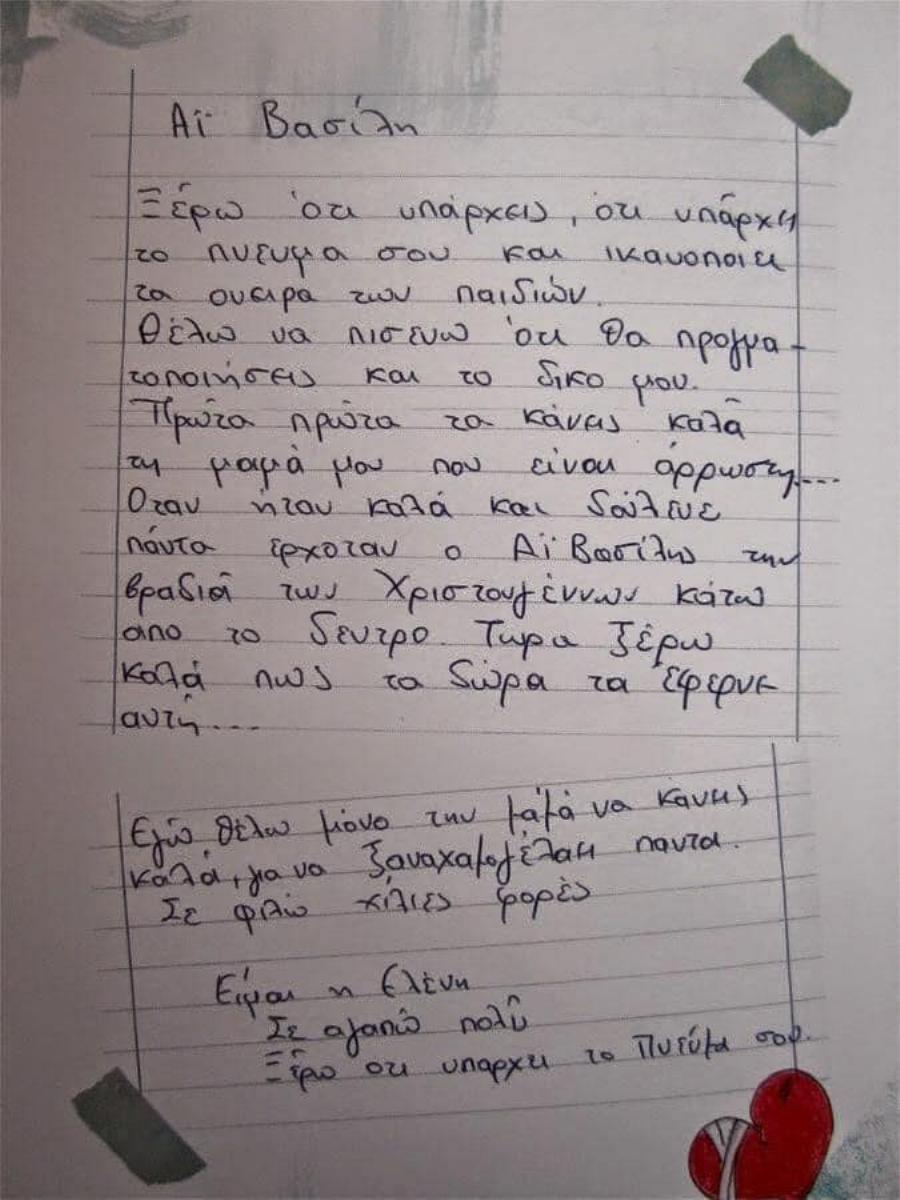 Αϊ Βασίλη
Ξέρω ότι υπάρχεις, ότι υπάρχει
το πνευμα σου και ικανοποιει
τα ονειρα των παιδιών.
Θέλω να πισευω ότι θα πραγμα-
τοποιήσεις και το δικο μου.
Πρώτα πρώτα τα κάνεις καλά
τη μαμά μου που είναι άρρωστη....
Οταν ήταν καλά και δούλευε
πάντα έρχοταν ο Αϊ Βασίλης την
βραδιά των Χριστουγέννων κάτω
απο το δεντρο. Τωρα ξέρω
καλά πως τα δώρα τα έφερνε
αυτή....
Εγώ θέλω μόνο την μαμά να κανεις
καλά, για να ξαναχαμογέλαει παντα.
Σε φιλώ χίλιες φορές
Είμαι η Ελένη
Σε αγαπώ πολύ
Ξέρω οτι υπαρχει το Πνεύμα σου.